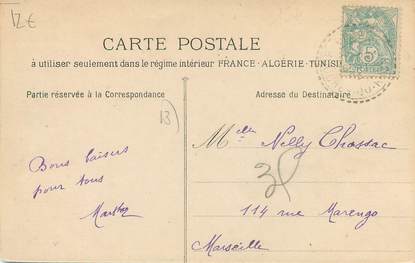 12€
CARTE POSTALE
à utiliser seulement dans le régime intérieur FRANCE - ALGÉRIE - TUNISIE
Partie réservée à la Correspondance
Adresse du Destinataire
13
Melle Nelly Chassac
Bons baisers
pour tous
114 rue Marengo
Marseille